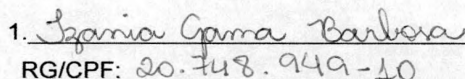 1. Izania Gama Barbosa
RG/CPF: 20.748.949-10